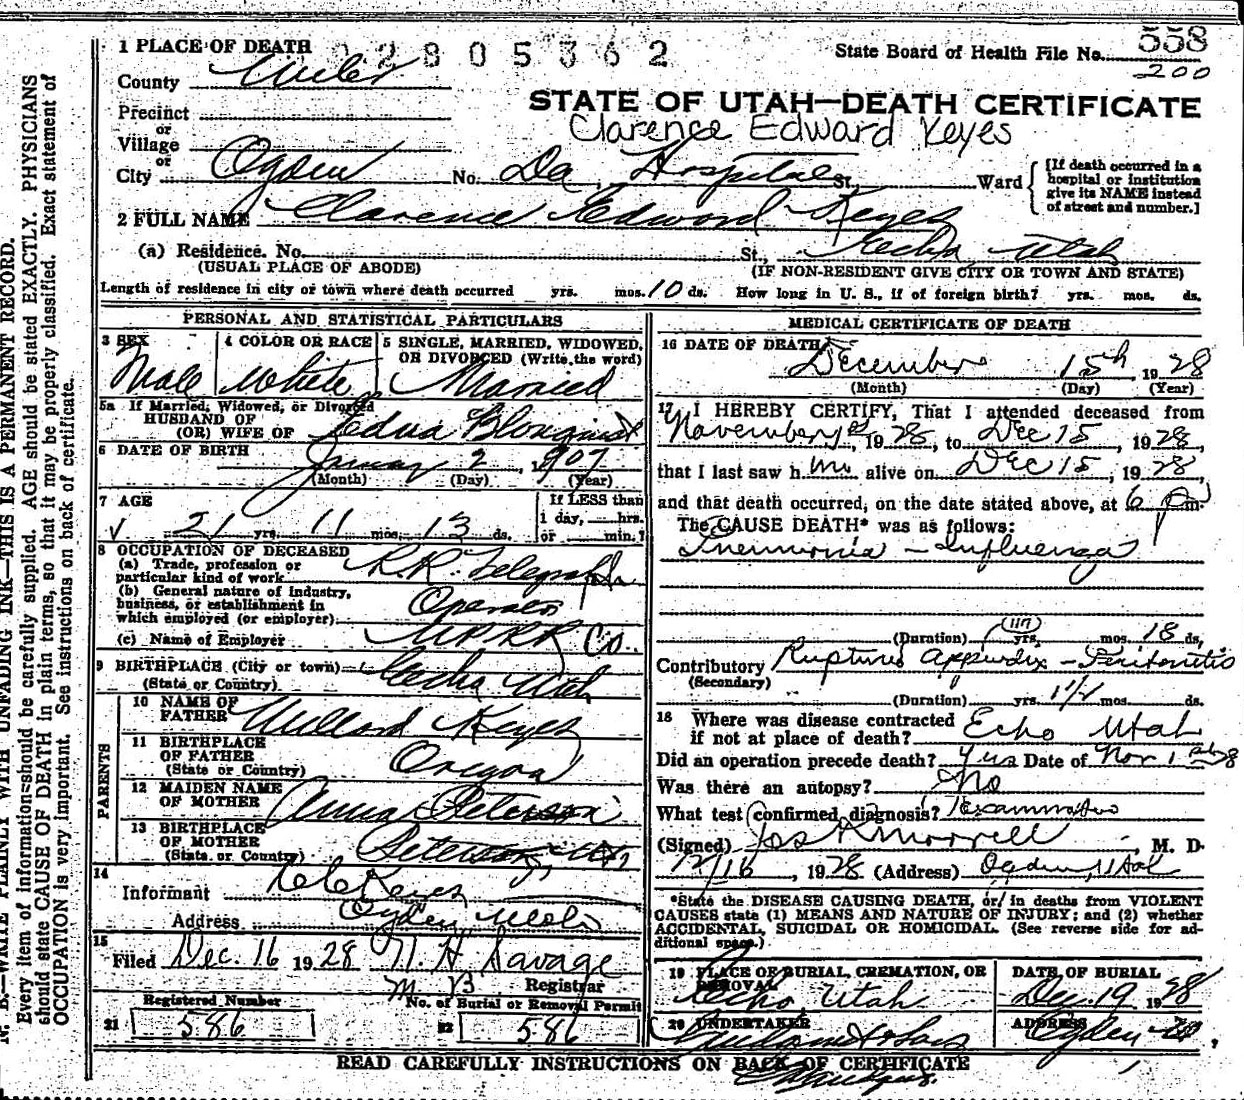 1 PLACE OF DEATH 02805362
State Board of Health File No. 558
200
County Weber
STATE OF UTAH—DEATH CERTIFICATE
Precinct
Clarence Edward Keyes
or
Village
or
City Ogden No. Dee Hospital St. Ward
[If death occurred in a hospital or institution give its NAME instead of street and number.]
2 FULL NAME Clarence Edward Keyes
(a) Residence. No. St., Echo Utah
(USUAL PLACE OF ABODE) (IF NON-RESIDENT GIVE CITY OR TOWN AND STATE)
Length of residence in city or town where death occurred yrs. mos. 10 ds. How long in U. S., if of foreign birth? yrs. mos. ds.
PERSONAL AND STATISTICAL PARTICULARS
3 SEX 4 COLOR OR RACE 5 SINGLE, MARRIED, WIDOWED, OR DIVORCED (Write the word)
Male White Married
5a If Married, Widowed, or Divorced
HUSBAND OF
(OR) WIFE OF Edna Blonquist
6 DATE OF BIRTH January 2, 1907
(Month) (Day) (Year)
7 AGE If LESS than
1 day, hrs.
21 yrs. 11 mos. 13 ds. or min.?
8 OCCUPATION OF DECEASED
(a) Trade, profession or
particular kind of work R.R. Telegraph
(b) General nature of industry,
business, or establishment in
which employed (or employer) Operator
(c) Name of Employer U P R R Co.
9 BIRTHPLACE (City or town)
(State or Country) Echo Utah
PARENTS
10 NAME OF
FATHER Willard Keyes
11 BIRTHPLACE
OF FATHER
(State or Country) Oregon
12 MAIDEN NAME
OF MOTHER Anna Peterson
13 BIRTHPLACE
OF MOTHER
(State or Country) Peterson Utah
14
Informant Keyes
Address Ogden Utah
15
Filed Dec. 16 1928 H Savage
M D Registrar
Registered Number No. of Burial or Removal Permit
21 586 22 586
MEDICAL CERTIFICATE OF DEATH
16 DATE OF DEATH
December 15th 1928
(Month) (Day) (Year)
17 I HEREBY CERTIFY, That I attended deceased from
November 1st, 1928, to Dec 15, 1928
that I last saw him alive on Dec 15, 1928
and that death occurred, on the date stated above, at 6 Pm.
The CAUSE DEATH* was as follows:
Pneumonia - Influenza
(Duration) yrs. mos. 18 ds.
Contributory Ruptured appendix - Peritonitis
(Secondary)
(Duration) yrs. 1 1/2 mos. ds.
18 Where was disease contracted
if not at place of death? Echo Utah
Did an operation precede death? Yes Date of Nov 1
Was there an autopsy? No
What test confirmed diagnosis? Examination
(Signed) Jos R Morrell, M. D.
12/16, 1928 (Address) Ogden, Utah
*State the DISEASE CAUSING DEATH, or in deaths from VIOLENT
CAUSES state (1) MEANS AND NATURE OF INJURY; and (2) whether
ACCIDENTAL, SUICIDAL OR HOMICIDAL. (See reverse side for ad-
ditional space.)
19 PLACE OF BURIAL, CREMATION, OR REMOVAL DATE OF BURIAL
Echo Utah Dec. 19 1928
20 UNDERTAKER ADDRESS
Ogden
READ CAREFULLY INSTRUCTIONS ON BACK OF CERTIFICATE
N. B.—WRITE PLAINLY WITH UNFADING INK—THIS IS A PERMANENT RECORD.
Every item of information should be carefully supplied. AGE should be stated EXACTLY. PHYSICIANS
should state CAUSE OF DEATH in plain terms, so that it may be properly classified. Exact statement of
OCCUPATION is very important. See instructions on back of certificate.